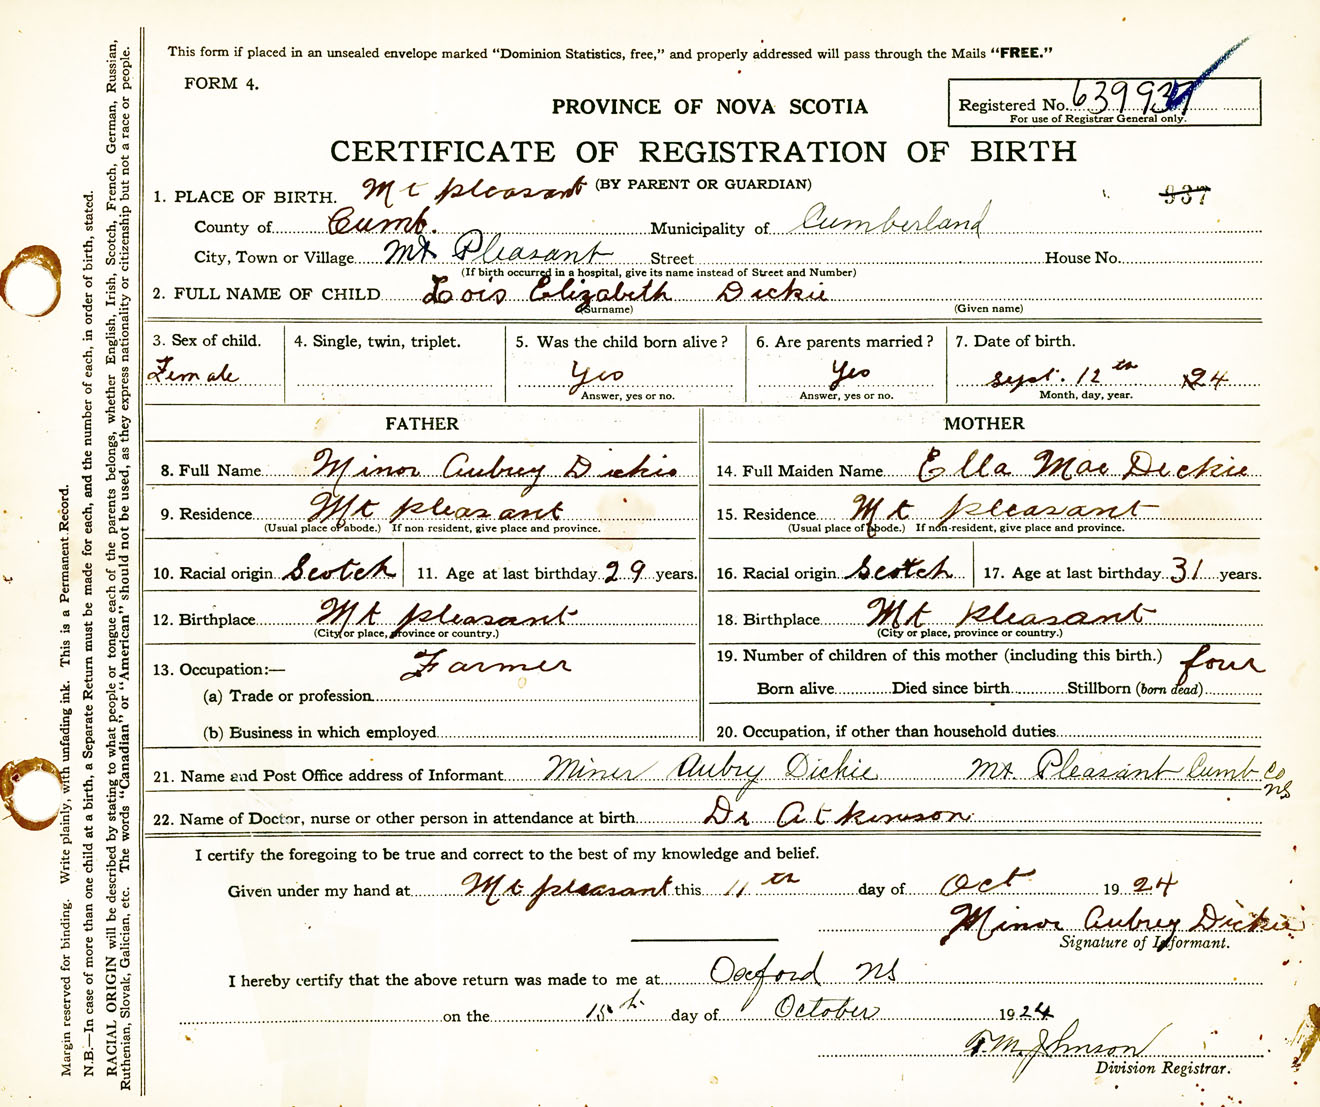 This form if placed in an unsealed envelope marked "Dominion Statistics, free," and properly addressed will pass through the Mails "FREE."
FORM 4.
PROVINCE OF NOVA SCOTIA
Registered No. 639937
For use of Registrar General only.
CERTIFICATE OF REGISTRATION OF BIRTH
(BY PARENT OR GUARDIAN)
937
1. PLACE OF BIRTH. Mt pleasant
County of Cumb. Municipality of Cumberland
City, Town or Village Mt Pleasant Street House No.
(If birth occurred in a hospital, give its name instead of Street and Number)
2. FULL NAME OF CHILD Lois Elizabeth Dickie
(Surname) (Given name)
3. Sex of child. 4. Single, twin, triplet. 5. Was the child born alive? 6. Are parents married? 7. Date of birth.
Female Yes Yes Sept. 12th 24
Answer, yes or no. Answer, yes or no. Month, day, year.
FATHER MOTHER
8. Full Name Minor Aubrey Dickie 14. Full Maiden Name Ella Mae Dickie
9. Residence Mt pleasant 15. Residence Mt pleasant
(Usual place of abode.) If non resident, give place and province. (Usual place of abode.) If non-resident, give place and province.
10. Racial origin Scotch 11. Age at last birthday 29 years. 16. Racial origin Scotch 17. Age at last birthday 31 years.
12. Birthplace Mt pleasant 18. Birthplace Mt pleasant
(City or place, province or country.) (City or place, province or country.)
13. Occupation:— Farmer 19. Number of children of this mother (including this birth.) four
(a) Trade or profession Born alive Died since birth Stillborn (born dead)
(b) Business in which employed 20. Occupation, if other than household duties
21. Name and Post Office address of Informant Miner Aubry Dickie Mt. Pleasant Cumb Co NS
22. Name of Doctor, nurse or other person in attendance at birth Dr Atkinson
I certify the foregoing to be true and correct to the best of my knowledge and belief.
Given under my hand at Mt pleasant this 11th day of Oct 1924
Minor Aubrey Dickie
Signature of Informant.
I hereby certify that the above return was made to me at Oxford NS
on the 15th day of October 1924
T.M. Johnson
Division Registrar.
Margin reserved for binding. Write plainly, with unfading ink. This is a Permanent Record.
N.B.—In case of more than one child at a birth, a Separate Return must be made for each, and the number of each, in order of birth, stated.
RACIAL ORIGIN will be described by stating to what people or tongue each of the parents belongs, whether English, Irish, Scotch, French, German, Russian,
Ruthenian, Slovak, Galician, etc. The words "Canadian" or "American" should not be used, as they express nationality or citizenship but not a race or people.